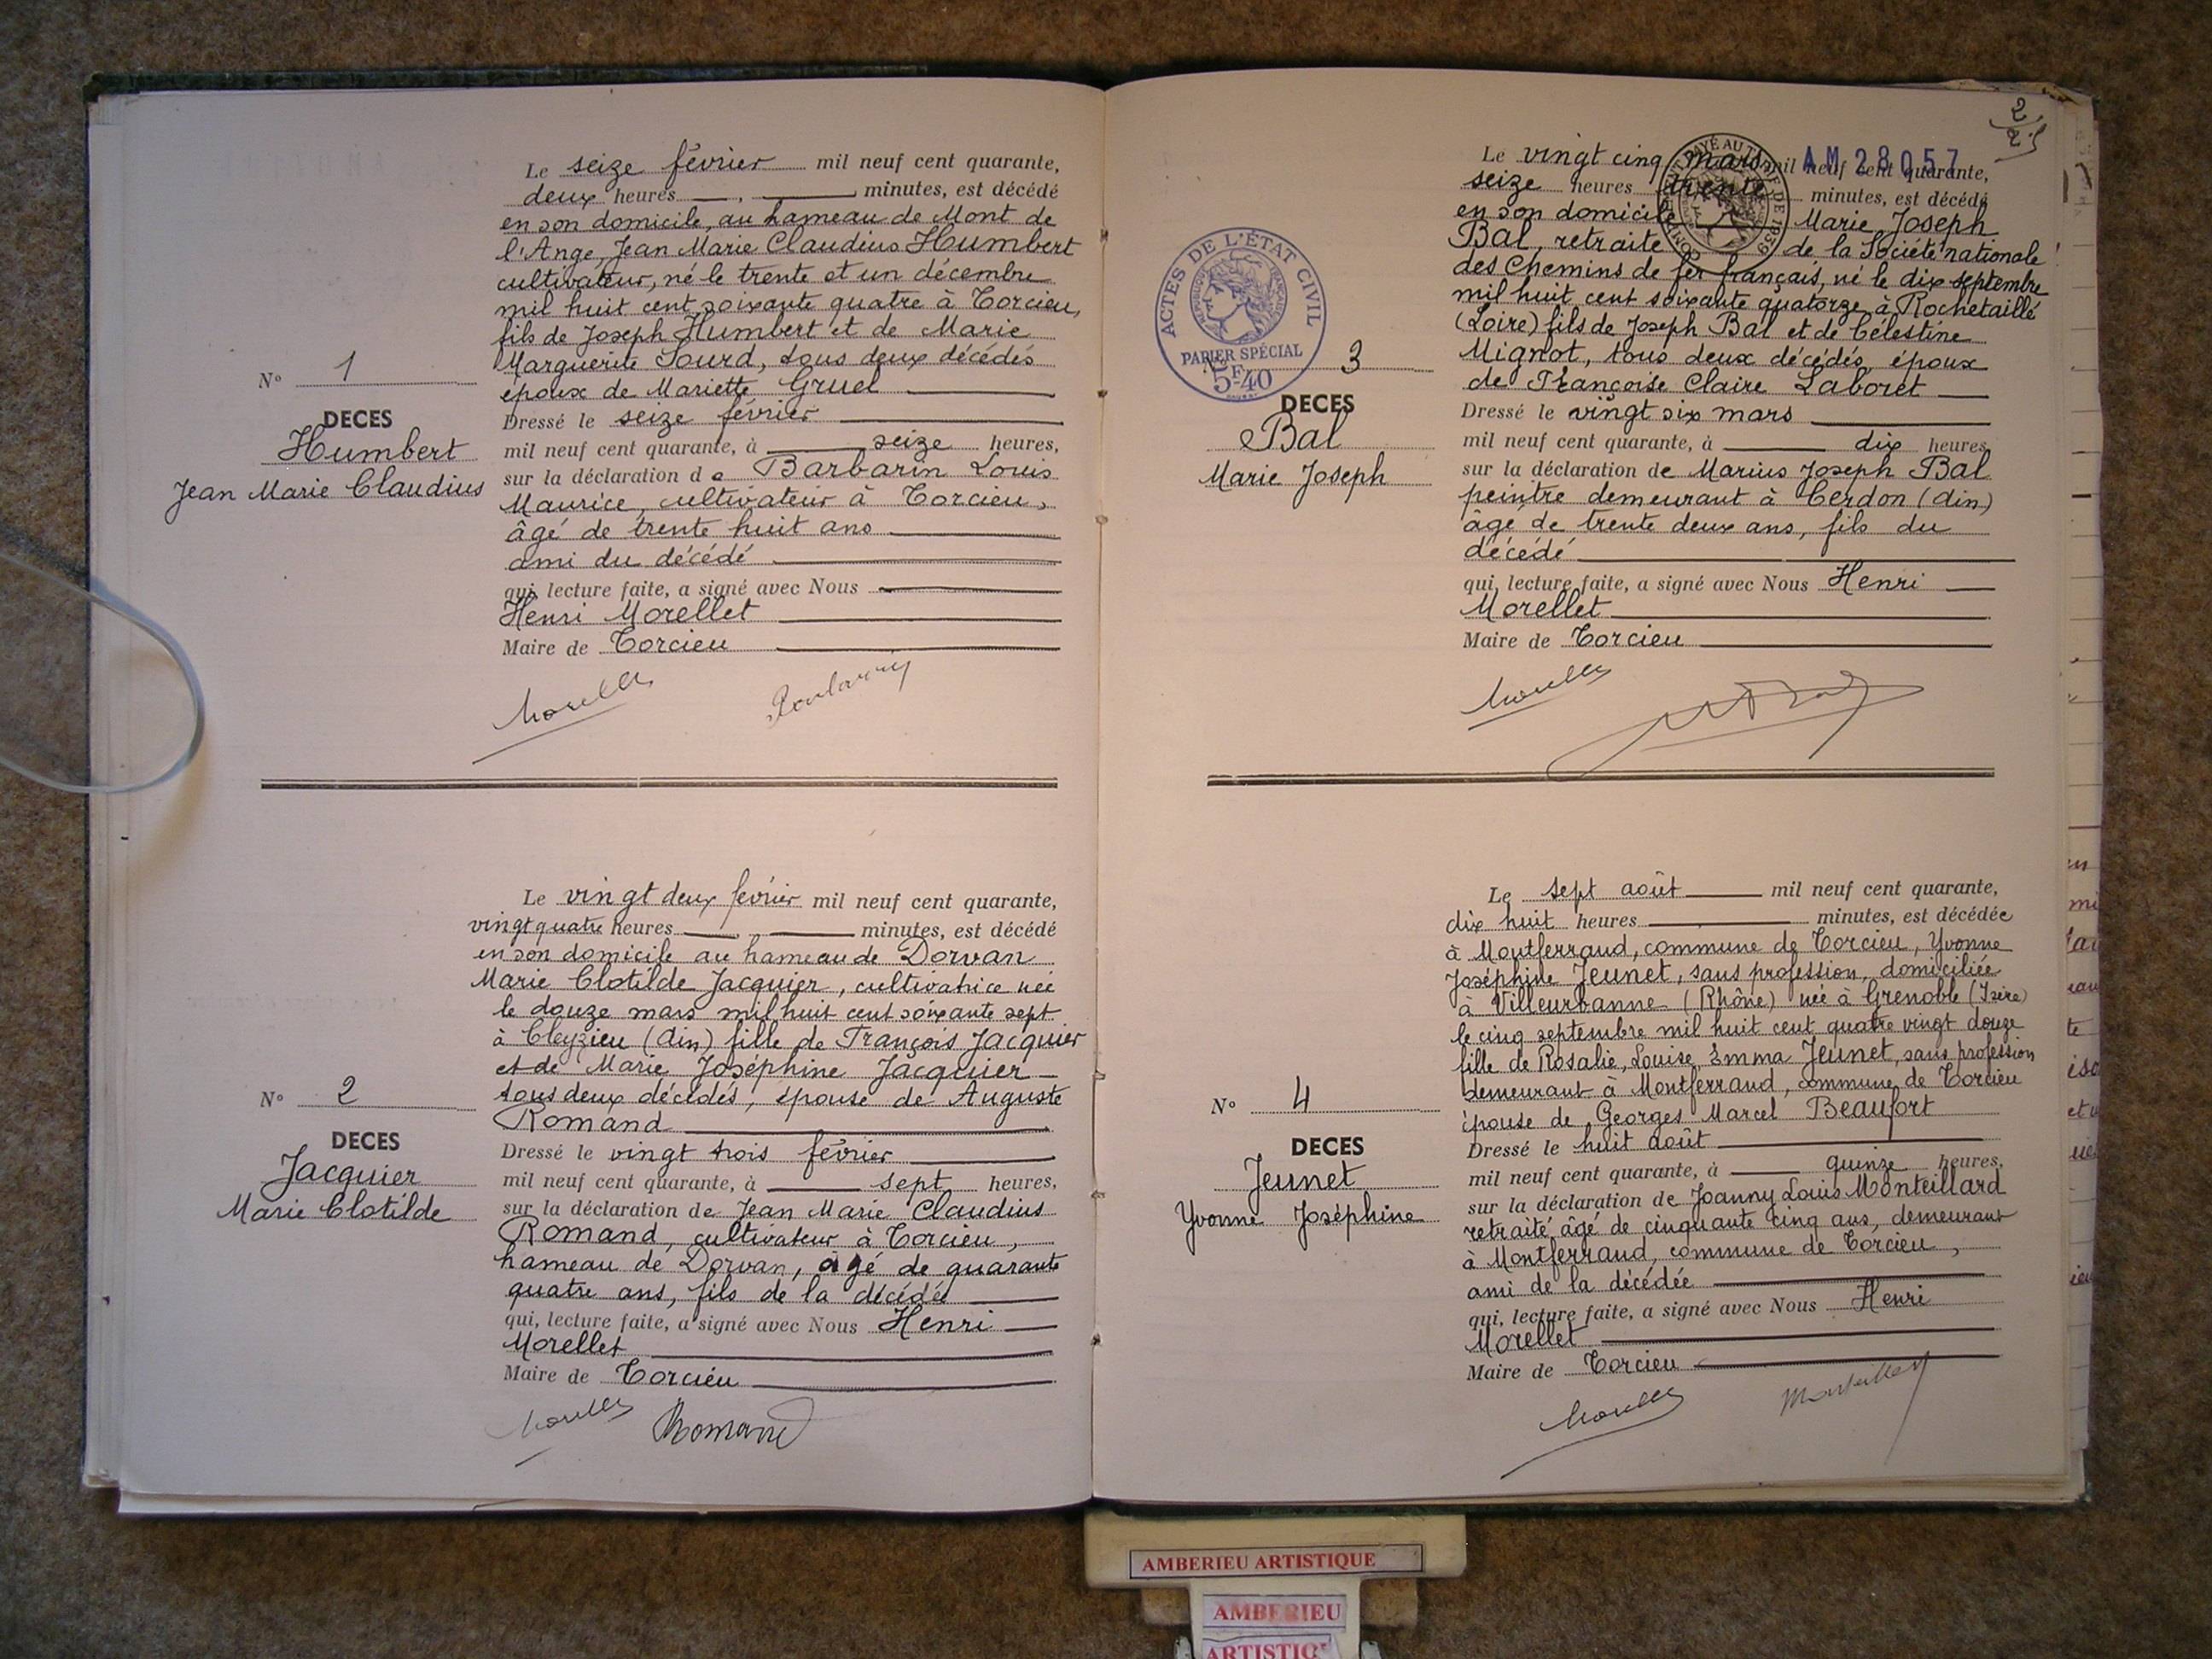 Le seize février mil neuf cent quarante,
deux heures , minutes, est décédé
en son domicile, au hameau de Mont de
l'Ange, Jean Marie Claudius Humbert
cultivateur, né le trente et un décembre
mil huit cent soixante quatre à Torcieu,
fils de Joseph Humbert et de Marie
Marguerite Sourd, tous deux décédés
époux de Mariette Gruel
N° 1
DECES
Humbert
Jean Marie Claudius
Dressé le seize février
mil neuf cent quarante, à seize heures,
sur la déclaration de Barbarin Louis
Maurice, cultivateur à Torcieu,
âgé de trente huit ans
ami du décédé
qui, lecture faite, a signé avec Nous
Henri Morellet
Maire de Torcieu
Le vingt deux février mil neuf cent quarante,
vingt quatre heures , minutes, est décédé
en son domicile au hameau de Dorvan
Marie Clotilde Jacquier, cultivatrice née
le douze mars mil huit cent soixante sept
à Cleyzieu (Ain) fille de François Jacquier
et de Marie Joséphine Jacquier
tous deux décédés, épouse de Auguste
Romand
N° 2
DECES
Jacquier
Marie Clotilde
Dressé le vingt trois février
mil neuf cent quarante, à sept heures,
sur la déclaration de Jean Marie Claudius
Romand, cultivateur à Torcieu,
hameau de Dorvan, âgé de quarante
quatre ans, fils de la décédée
qui, lecture faite, a signé avec Nous Henri
Morellet
Maire de Torcieu
Romand
2
25
AM 28057
Le vingt cinq mars mil neuf cent quarante,
seize heures trente minutes, est décédé
en son domicile Marie Joseph
Bal, retraité de la Société nationale
des Chemins de fer français, né le dix septembre
mil huit cent soixante quatorze à Rochetaillé
(Loire) fils de Joseph Bal et de Célestine
Mignot, tous deux décédés, époux
de Françoise Claire Laboret
ACTES DE L'ÉTAT CIVIL
RÉPUBLIQUE FRANÇAISE
PAPIER SPÉCIAL
5F40
3
DECES
Bal
Marie Joseph
Dressé le vingt six mars
mil neuf cent quarante, à dix heures
sur la déclaration de Marius Joseph Bal
peintre demeurant à Cerdon (Ain)
âgé de trente deux ans, fils du
décédé
qui, lecture faite, a signé avec Nous Henri
Morellet
Maire de Torcieu
Le sept août mil neuf cent quarante,
dix huit heures minutes, est décédée
à Montferrand, commune de Torcieu, Yvonne
Joséphine Jeunet, sans profession, domiciliée
à Villeurbanne (Rhône) née à Grenoble (Isère)
le cinq septembre mil huit cent quatre vingt douze
fille de Rosalie, Louise, Emma Jeunet, sans profession
demeurant à Montferrand, commune de Torcieu
épouse de Georges Marcel Beaufort
N° 4
DECES
Jeunet
Yvonne Joséphine
Dressé le huit août
mil neuf cent quarante, à quinze heures,
sur la déclaration de Joanny Louis Monteillard
retraité, âgé de cinquante cinq ans, demeurant
à Montferrand, commune de Torcieu,
ami de la décédée
qui, lecture faite, a signé avec Nous Henri
Morellet
Maire de Torcieu
AMBERIEU ARTISTIQUE
AMBERIEU
ARTISTIQ